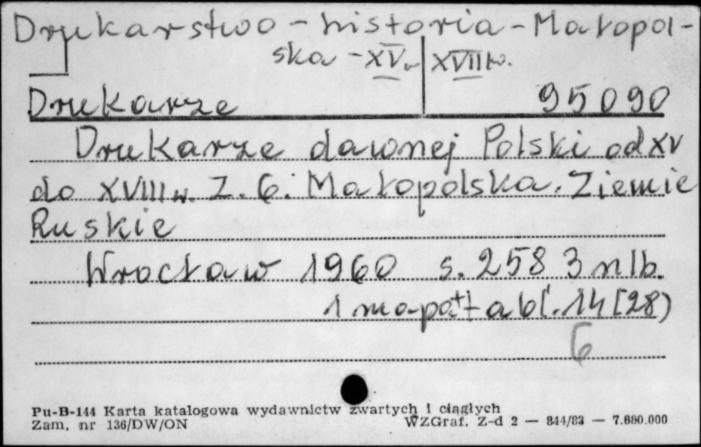 Drukarstwo - historia - Małopol-
ska - XV w. XVIII w.
Drukarze 95090
Drukarze dawnej Polski od XV
do XVIII w. Z. 6. Małopolska. Ziemie
Ruskie
Wrocław 1960 s. 258 3 nlb.
1 mapa tabl. 14 [28)
6
Pu-B-144 Karta katalogowa wydawnictw zwartych i ciągłych
Zam. nr 136/DW/ON WZGraf. Z-d 2 — 844/83 — 7.680.000